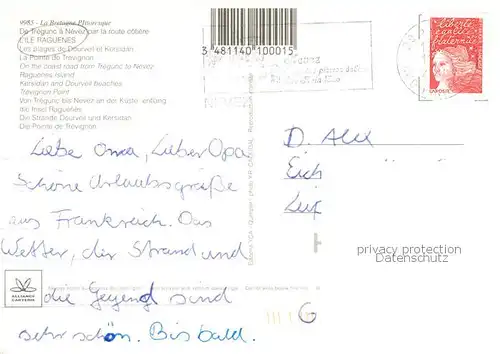 9983 - La Bretagne Pittoresque
De Trégunc à Névez par la route côtière
L'ILE RAGUENES
Les plages de Dourveil et Kersidan
La Pointe de Trévignon
On the coast road from Trégunc to Nevez
Raguenes island
Kersidan and Dourveil beaches
Trévignon Point
Von Trégunc bis Nevez an der Küste entlang
die Insel Raguenès
Die Strände Dourveil und Kersidan
Die Pointe de Trévignon
3 481140 100015
liberté
égalité
fraternité
LA POSTE
Liebe Oma, Lieber Opa
Schöne Urlaubsgrüße
aus Frankreich. Das
Wetter, der Strand und
die Gegend sind
sehr schön. Bis bald.
ALLIANCE
CARTERIE
D. Alex
Eich
Lux
privacy protection
Datenschutz